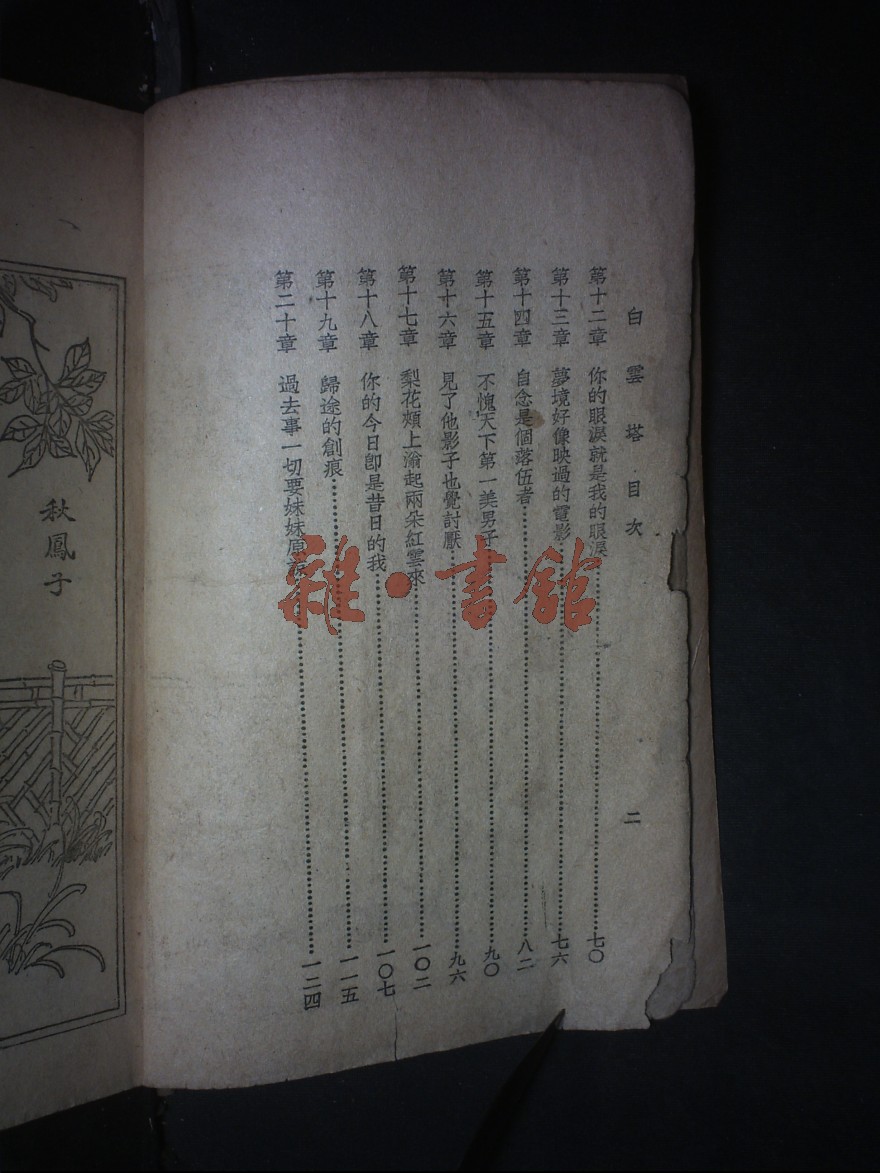 白雲塔 目次 二
第十二章 你的眼淚就是我的眼淚 七〇
第十三章 夢境好像映過的電影 七六
第十四章 自念是個落伍者 八二
第十五章 不愧天下第一美男子 九〇
第十六章 見了他影子也覺討厭 九六
第十七章 梨花頰上渝起兩朵紅雲來 一〇二
第十八章 你的今日卽是昔日的我 一〇七
第十九章 歸途的創痕 一一五
第二十章 過去事一切要妹妹原 一二四
秋鳳子
雜·書館